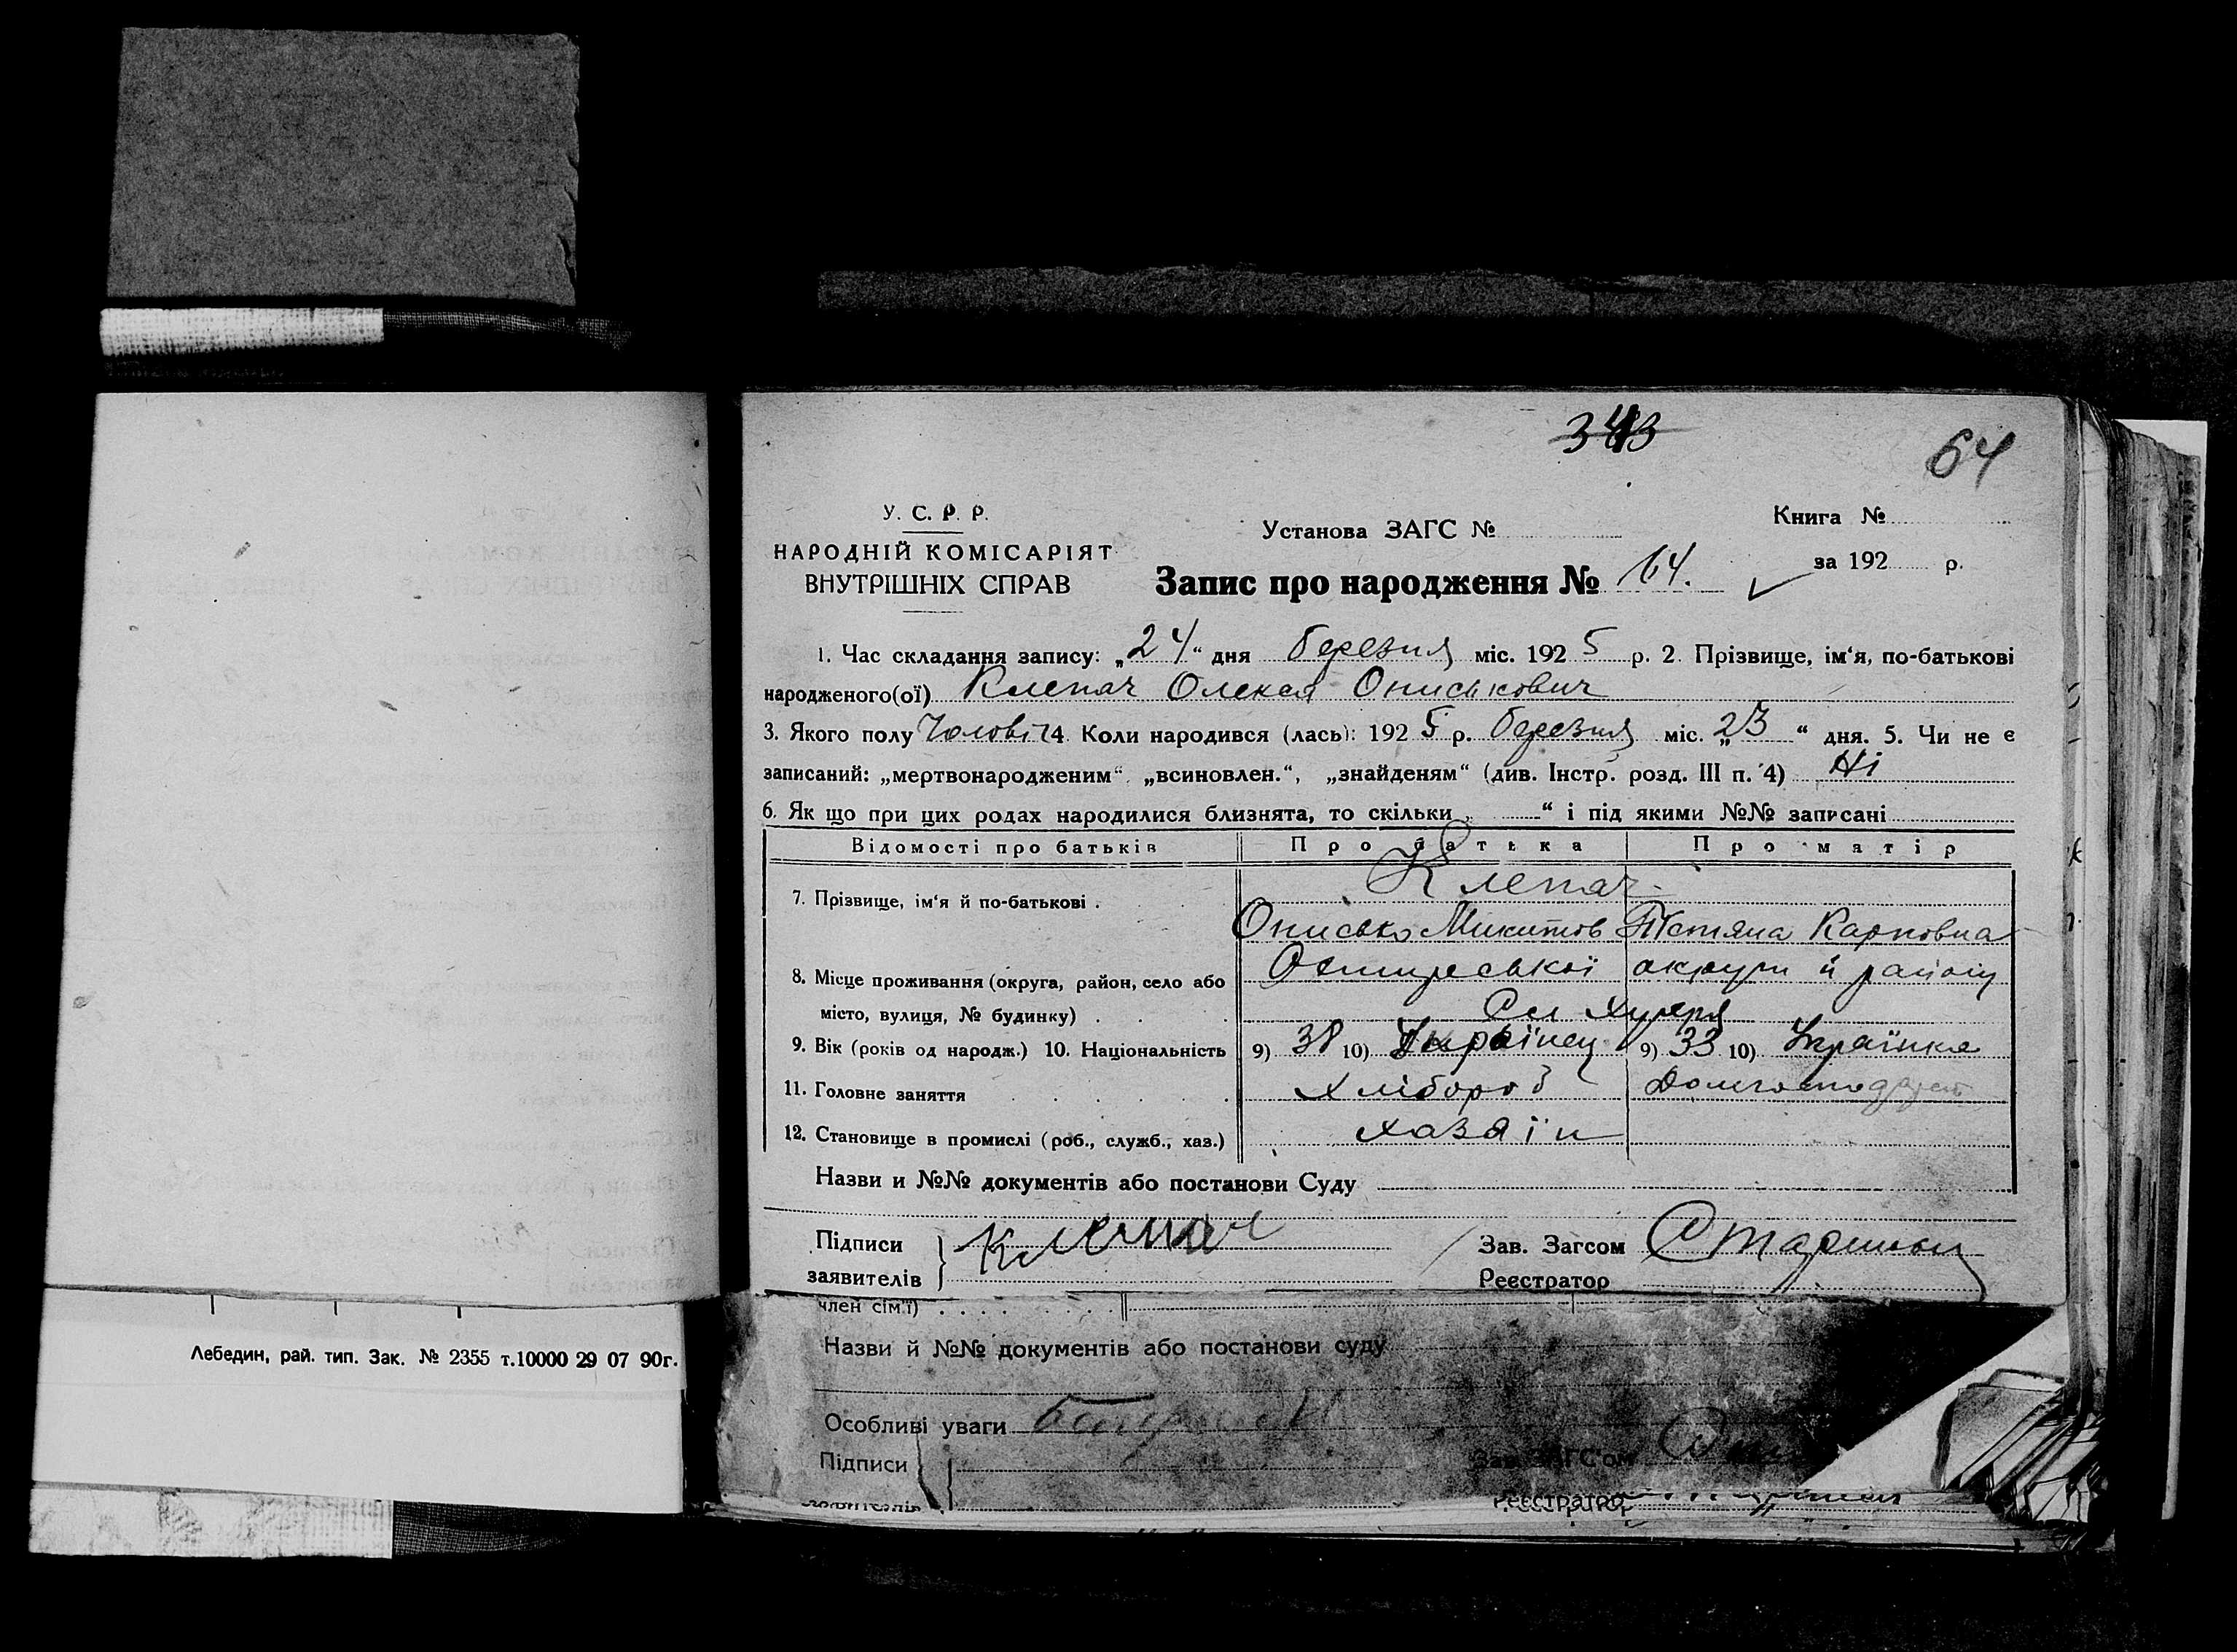 343
64
У. С. Р. Р.
НАРОДНІЙ КОМІСАРІЯТ
ВНУТРІШНІХ СПРАВ
Установа ЗАГС №
Книга №
за 192 р.
Запис про народження № 64.
1. Час складання запису: „24“ дня березня міс. 1925 р. 2. Прізвище, ім‘я, по-батькові
народженого(ої) Клепач Олекся Ониськович
3. Якого полу Чоловіч 4. Коли народився (лась): 1925 р. березня міс. „23“ дня. 5. Чи не є
записаний: „мертвонародженим“, „всиновлен.“, „знайденям“ (див. Інстр. розд. III п. 4) Ні
6. Як що при цих родах народилися близнята, то скільки „ “ і під якими №№ записані
Відомості про батьків Про батька Про матір
Клепач
7. Прізвище, ім‘я й по-батькові .
Онисько Микитов Татяна Карповна
8. Місце проживання (округа, район, село або
Охтирської округи й району
місто, вулиця, № будинку) . .
9. Вік (років од народж.) 10. Національність 9) 38 10) Українец 9) 33 10) Українка
11. Головне заняття Хлібороб
12. Становище в промислі (роб., служб., хаз.) хазяїн
Назви и №№ документів або постанови Суду
Підписи
заявителів Клепач
Зав. Загсом
Реєстратор
член сім'ї)
Назви й №№ документів або постанови суду
Особливі уваги
Підписи
Зав. ЗАГС'ом
заявителів
Реєстратор
Лебедин, рай. тип. Зак. № 2355 т.10000 29 07 90г.